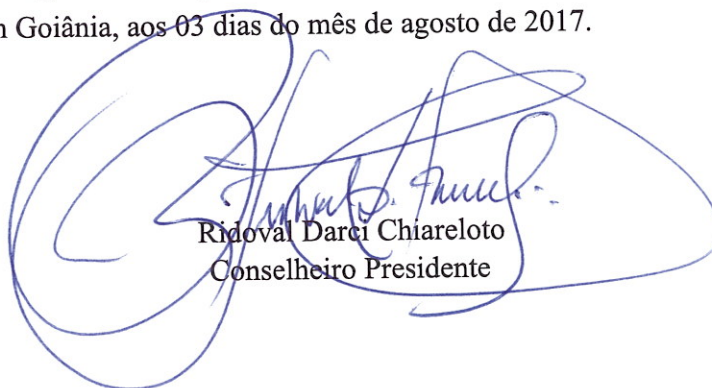 Goiânia, aos 03 dias do mês de agosto de 2017.
Ridoval Darci Chiareloto
Conselheiro Presidente